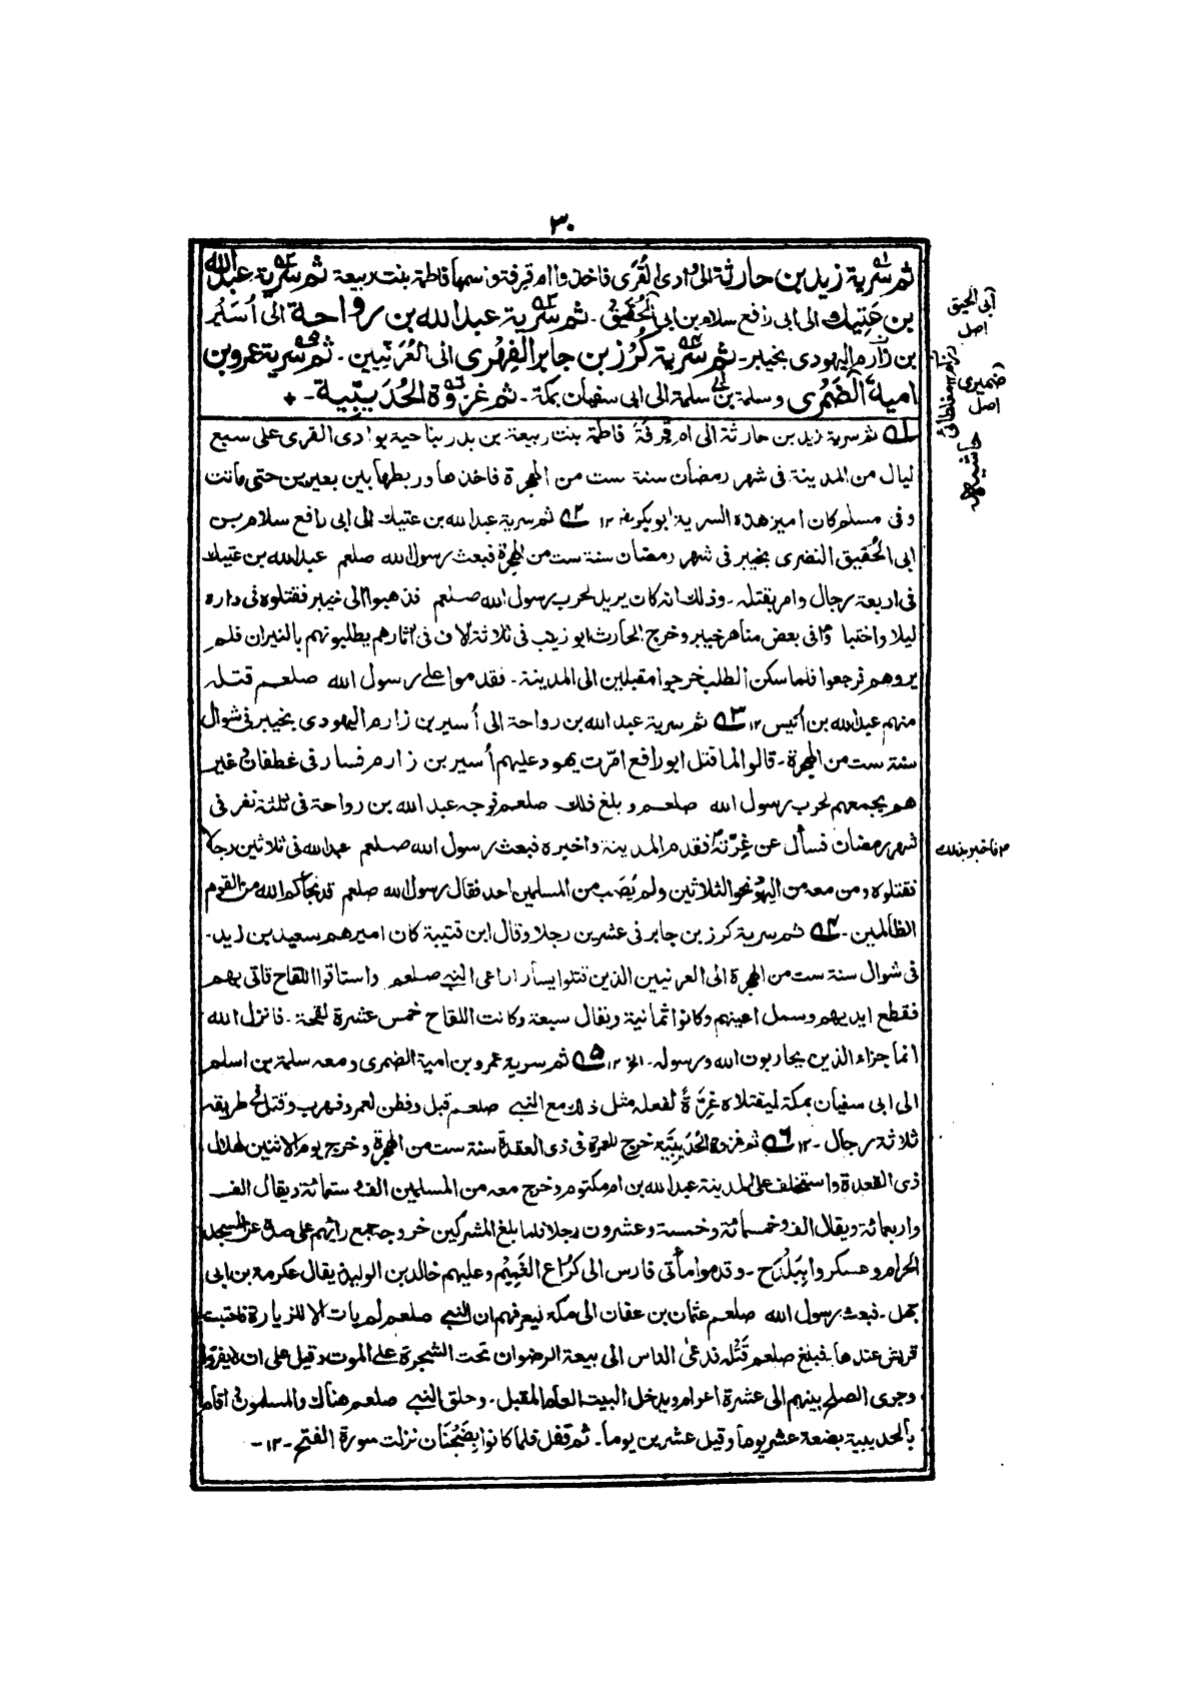 ٣٠
ثم سرية زيد بن حارثة الى وادى القُرٰى فاخذوا ام قرفة وسمها فاطمة بنت ربيعة ثم سرية عبد الله
بن عَتِيك الى ابى رافع سلام بن ابى الحُقَيق۔ ثم سرية عبد الله بن رواحة الى اُسَيْر
بن زارم اليهودى بخيبر۔ ثم سرية كُرْز بن جابر الفِهْرى الى العُرَنِيين۔ ثم سرية عمرو بن
امية الضَمْرى وسلمة بن سلمة الى ابى سفيان بمكة۔ ثم غزوة الحُدَيبِيّة۔
ابى الحقيق اصل
ضميرى اصل
حاشيه
٥١ ثم سرية زيد بن حارثة الى ام قِرفَة فاطمة بنت ربيعة بن بدر بناحية بوادى القرى على سبع
ليال من المدينة فى شهر رمضان سنة ست من الهجرة فاخذها وربطها بين بعيرين حتى ماتت
وفى مسلم كان امير هذه السرية ابو بكر ١٢ ٥٢ ثم سرية عبد الله بن عتيك الى ابى رافع سلام بن
ابى الحُقيق النضرى بخيبر فى شهر رمضان سنة ست من الهجرة فبعث رسول الله صلعم عبد الله بن عتيك
فى اربعة رجال وامر بقتله۔ وذلك انه كان يريد لحرب رسول الله صلعم فذهبوا الى خيبر فقتلوه فى داره
ليلا واختبأوا فى بعض مناهر خيبر وخرج الحارث ابو زينب فى ثلاثة الاف فى اثارهم يطلبونهم بالنيران فلم
يروهم فرجعوا فلما سكن الطلب خرجوا مقبلين الى المدينة۔ فقدموا على رسول الله صلعم قتله
منهم عبد الله بن اُنيس ١٢ ٥٣ ثم سرية عبد الله بن رواحة الى اُسير بن زارم اليهودى بخيبر فى شوال
سنة ست من الهجرة۔ قالوا لما قتل ابو رافع امّرت يهود عليهم اُسير بن زارم فسار فى غطفان وغير
هم يجمعهم لحرب رسول الله صلعم وبلغ ذلك صلعم فوجه عبد الله بن رواحة فى ثلثة نفر فى
شهر رمضان فسأل عن غِرّته فقدم المدينة واخبره فبعث رسول الله صلعم عبد الله فى ثلاثين رجلا
فاخبر بذلك
فقتلوه ومن معه من اليهود نحو الثلاثين ولم يُصَب من المسلمين احد فقال رسول الله صلعم قد نجاكم الله من القوم
الظالمين۔ ٥٤ ثم سرية كرز بن جابر فى عشرين رجلا وقال ابن قتيبة كان اميرهم سعيد بن زيد۔
فى شوال سنة ست من الهجرة الى العرنيين الذين قتلوا يسارا راعى النبى صلعم واستاقوا اللقاح فاتى بهم
فقطع ايديهم وسمل اعينهم وكانوا ثمانية ويقال سبعة وكانت اللقاح خمس عشرة لقحة۔ فانزل الله
انما جزاء الذين يحاربون الله ورسوله۔ الخ ١٢ ٥٥ ثم سرية عمرو بن امية الضمرى ومعه سلمة بن اسلم
الى ابى سفيان بمكة ليقتلاه غِرَّةً لفعله مثل ذلك مع النبى صلعم قبل وفطن لعمرو فهرب وقتل فى طريقه
ثلاثة رجال۔ ١٢ ٥٦ ثم غزوة الحُدَيبِيّة خرج للعمرة فى ذى القعدة سنة ست من الهجرة وخرج يوم الاثنين لهلال
ذى القعدة واستخلف على المدينة عبد الله بن ام مكتوم وخرج معه من المسلمين الف وستمائة ويقال الف
واربعمائة ويقال الف وخمسمائة وخمسة وعشرون رجلا فلما بلغ المشركين خروجه جمع رائهم على صده عن المسجد
الحرام وعسكروا بِبَلْدَح۔ وقدموا مأتى فارس الى كُرَاع الغَمِيْم وعليهم خالد بن الوليد ويقال عكرمة بن ابى
جهل۔ فبعث رسول الله صلعم عثمان بن عفان الى مكة فيعرفهم ان النبى صلعم لم يات الا للزيارة فاحتبسته
قريش عندها۔ فبلغ صلعم قَتْله فدعى الناس الى بيعة الرضوان تحت الشجرة على الموت وقيل على ان لا يفروا
وجرى الصلح بينهم الى عشرة اعوام ويدخل البيت العام المقبل۔ وحلق النبى صلعم هناك والمسلمون واقام
بالحديبية بضعة عشر يوما وقيل عشرين يوما۔ ثم قفل فلما كانوا بِضَجْنَان نزلت سورة الفتح۔ ١٢۔